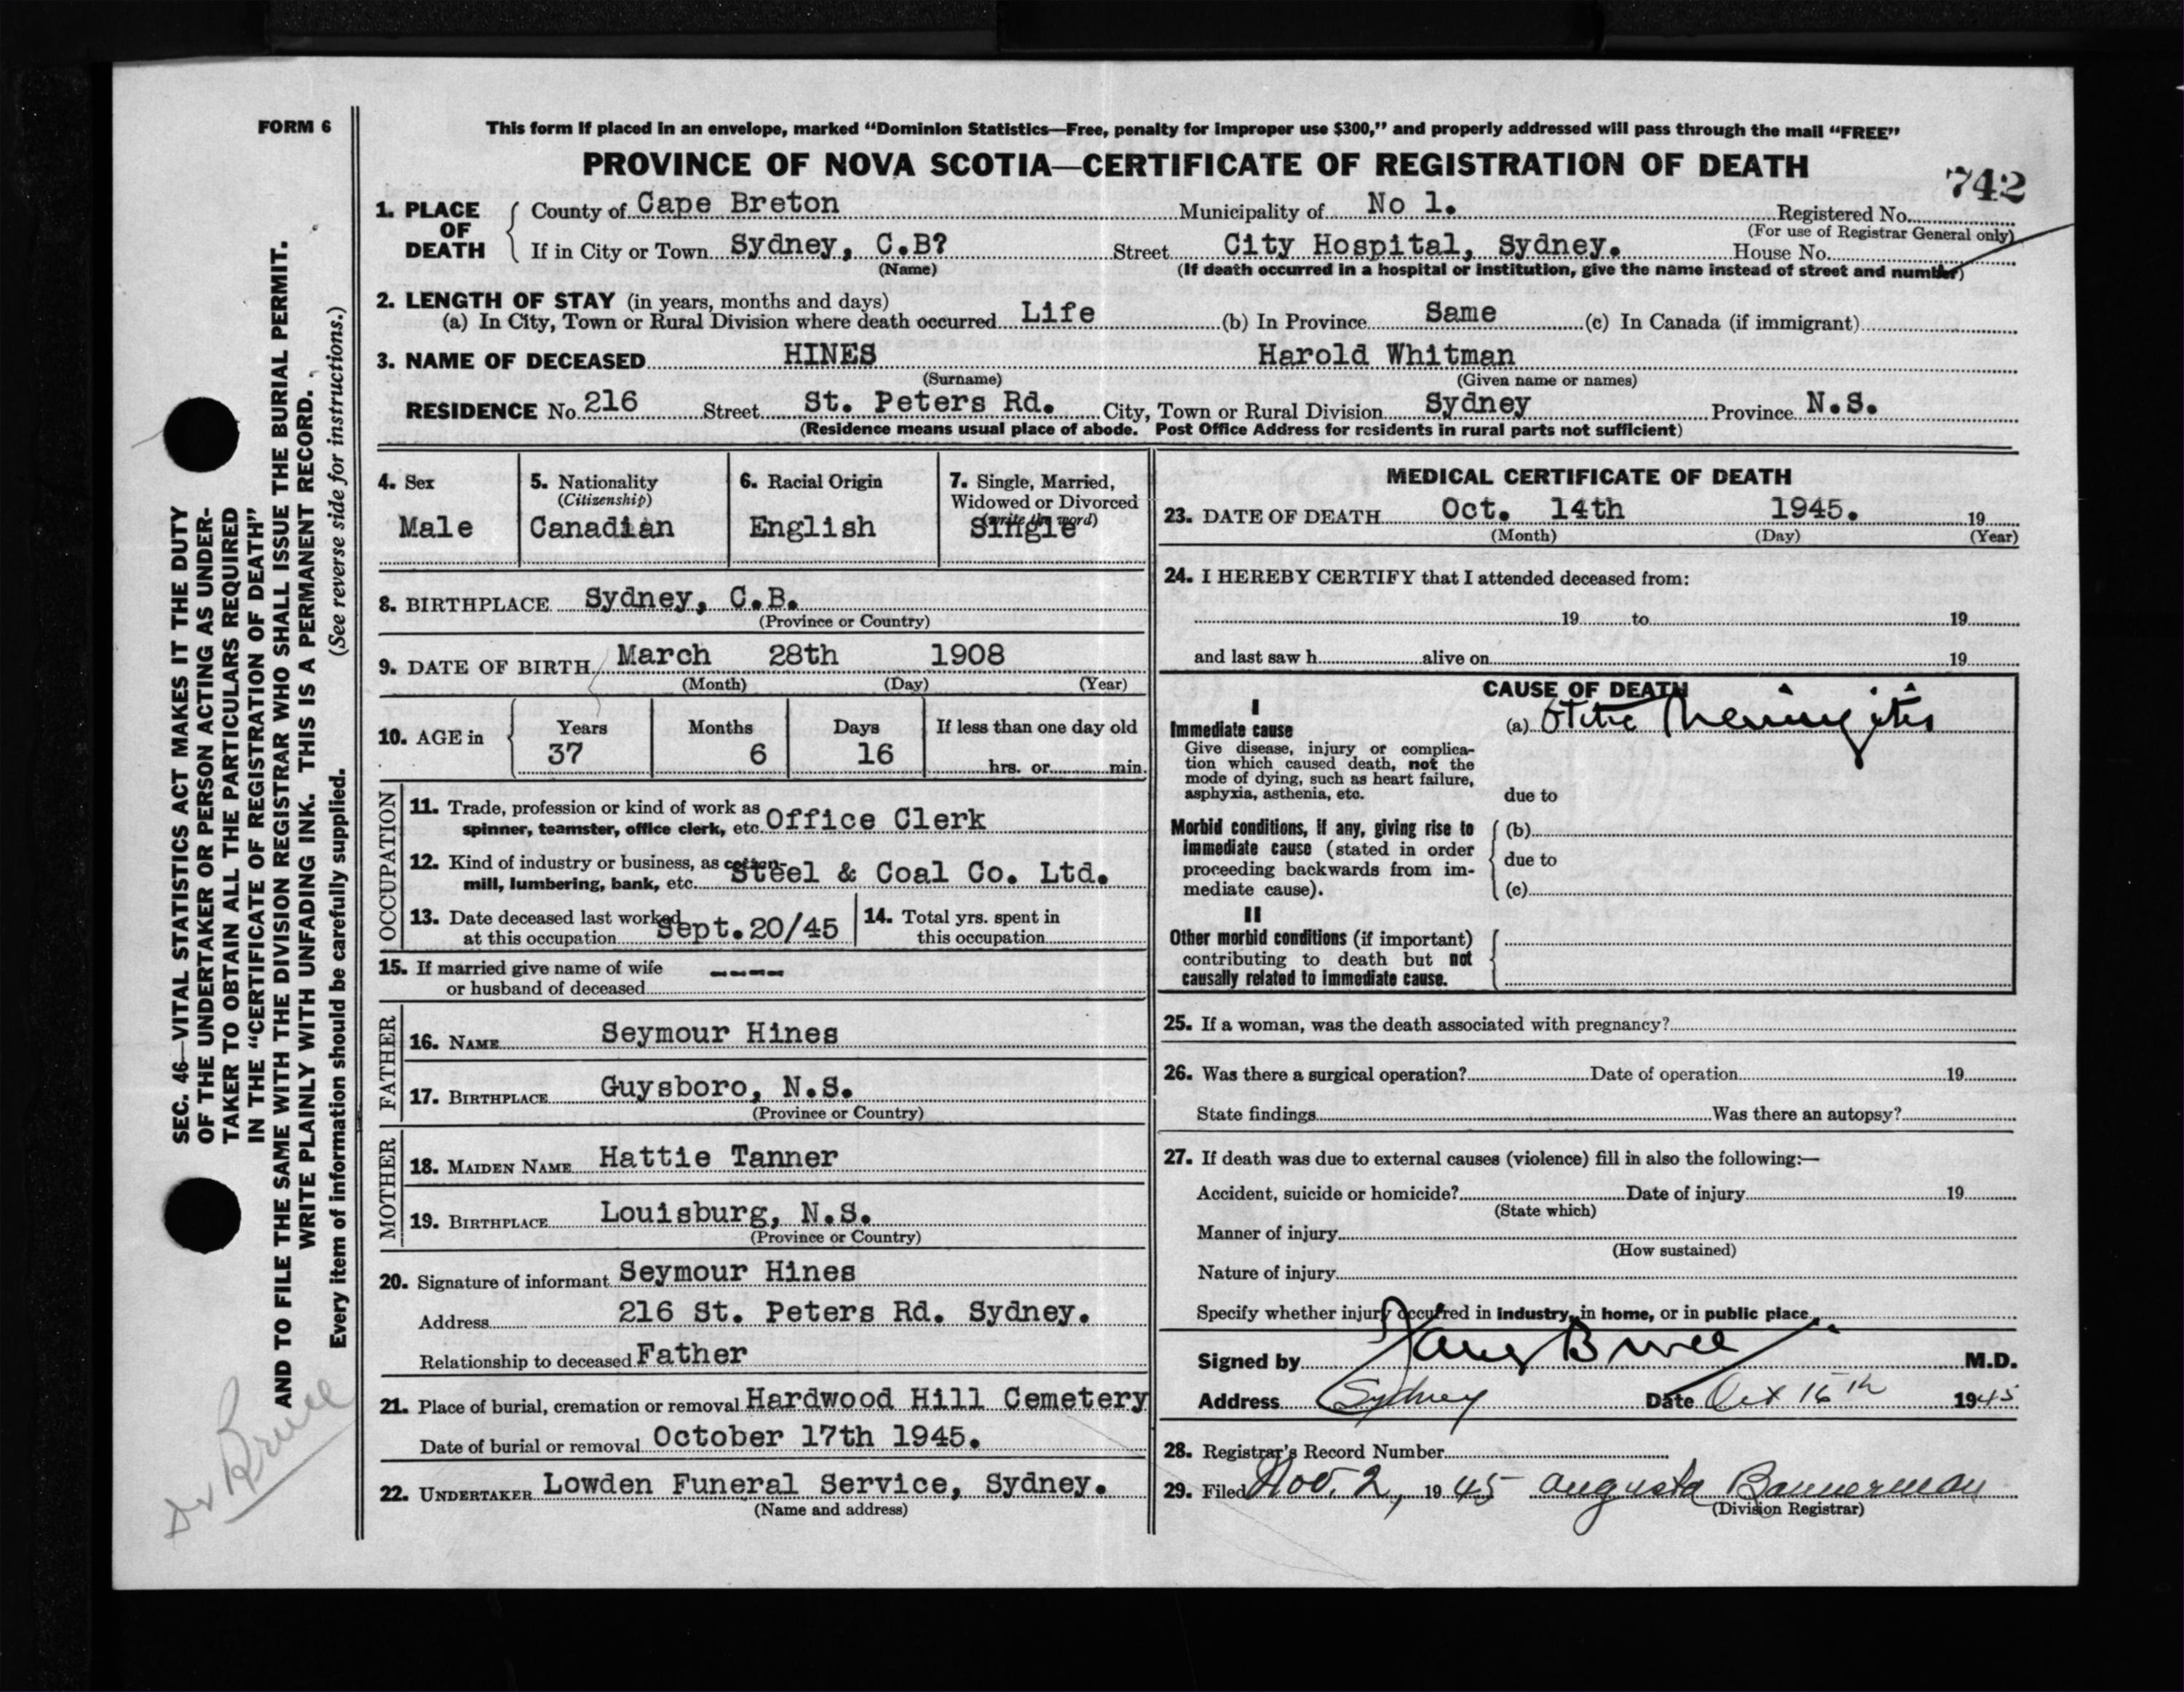 FORM 6
This form if placed in an envelope, marked “Dominion Statistics—Free, penalty for improper use $300,” and properly addressed will pass through the mail “FREE”
PROVINCE OF NOVA SCOTIA—CERTIFICATE OF REGISTRATION OF DEATH
742
1. PLACE OF DEATH
County of Cape Breton Municipality of No 1. Registered No.
(For use of Registrar General only)
If in City or Town Sydney, C.B? Street City Hospital, Sydney. House No.
(Name) (If death occurred in a hospital or institution, give the name instead of street and number)
2. LENGTH OF STAY (in years, months and days)
(a) In City, Town or Rural Division where death occurred Life (b) In Province Same (c) In Canada (if immigrant)
3. NAME OF DECEASED HINES Harold Whitman
(Surname) (Given name or names)
RESIDENCE No. 216 Street St. Peters Rd. City, Town or Rural Division Sydney Province N.S.
(Residence means usual place of abode. Post Office Address for residents in rural parts not sufficient)
4. Sex
Male
5. Nationality
(Citizenship)
Canadian
6. Racial Origin
English
7. Single, Married,
Widowed or Divorced
(write the word)
Single
8. BIRTHPLACE Sydney, C.B.
(Province or Country)
9. DATE OF BIRTH March 28th 1908
(Month) (Day) (Year)
10. AGE in
Years Months Days If less than one day old
37 6 16 hrs. or min.
OCCUPATION
11. Trade, profession or kind of work as
spinner, teamster, office clerk, etc. Office Clerk
12. Kind of industry or business, as cotton-
mill, lumbering, bank, etc. Steel & Coal Co. Ltd.
13. Date deceased last worked
at this occupation Sept. 20/45
14. Total yrs. spent in
this occupation
15. If married give name of wife ----
or husband of deceased
FATHER
16. NAME Seymour Hines
17. BIRTHPLACE Guysboro, N.S.
(Province or Country)
MOTHER
18. MAIDEN NAME Hattie Tanner
19. BIRTHPLACE Louisburg, N.S.
(Province or Country)
20. Signature of informant Seymour Hines
Address 216 St. Peters Rd. Sydney.
Relationship to deceased Father
21. Place of burial, cremation or removal Hardwood Hill Cemetery
Date of burial or removal October 17th 1945.
22. UNDERTAKER Lowden Funeral Service, Sydney.
(Name and address)
MEDICAL CERTIFICATE OF DEATH
23. DATE OF DEATH Oct. 14th 1945. 19
(Month) (Day) (Year)
24. I HEREBY CERTIFY that I attended deceased from:
19 to 19
and last saw h alive on 19
CAUSE OF DEATH
I
Immediate cause
Give disease, injury or complica-
tion which caused death, not the
mode of dying, such as heart failure,
asphyxia, asthenia, etc.
(a) Otitic Meningitis
due to
Morbid conditions, if any, giving rise to
immediate cause (stated in order
proceeding backwards from im-
mediate cause).
(b)
due to
(c)
II
Other morbid conditions (if important)
contributing to death but not
causally related to immediate cause.
25. If a woman, was the death associated with pregnancy?
26. Was there a surgical operation? Date of operation 19
State findings Was there an autopsy?
27. If death was due to external causes (violence) fill in also the following:—
Accident, suicide or homicide? Date of injury 19
(State which)
Manner of injury
(How sustained)
Nature of injury
Specify whether injury occurred in industry, in home, or in public place
Signed by Bruce M.D.
Address Sydney Date Oct 16th 1945
28. Registrar's Record Number
29. Filed Nov. 2, 1945 Augusta Bannerman
(Division Registrar)
SEC. 46—VITAL STATISTICS ACT MAKES IT THE DUTY
OF THE UNDERTAKER OR PERSON ACTING AS UNDER-
TAKER TO OBTAIN ALL THE PARTICULARS REQUIRED
IN THE “CERTIFICATE OF REGISTRATION OF DEATH”
AND TO FILE THE SAME WITH THE DIVISION REGISTRAR WHO SHALL ISSUE THE BURIAL PERMIT.
WRITE PLAINLY WITH UNFADING INK. THIS IS A PERMANENT RECORD.
Every item of information should be carefully supplied. (See reverse side for instructions.)
Dr Bruce